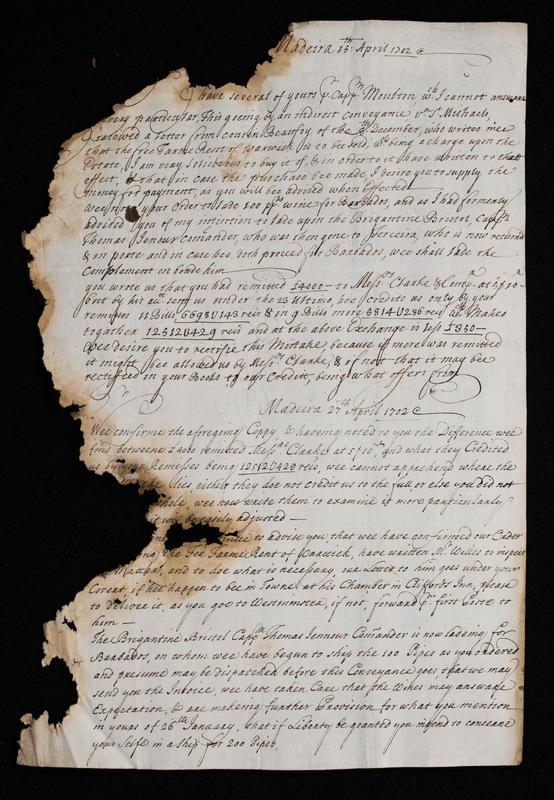 Madeira 13th April 1702
I have several of yours p. Capp.n Moulton, w.ch I cannot answare
very particular, this going by an indirect conveyance, via S.t Michaels,
received a letter from cousin Beaufoy of the December, who writes mee
that the fee Farme Rent of Warwick is to bee sold, being a charge upon the
Estate, I am very solicitous to buy it & in order to it have written to that
effect, & that in case the purchase bee made, I desire you to supply the
money for payment, as you will bee advised when effected
wee note your Order to lade 100 pi.s wine for Barbados, and as I had formerly
advised you of my intintion to lade upon the Brigantine Bristol, Capp.n
Thomas Jenour Comander, who was then gone to Terceira, who is now returnd
& in porte and in case hee doth proceed for Barbados, wee shall lade the
Complement on borde him
you wrote us that you had remitted £4000 to Mess.rs Clarke & Comp.
but by his sent us under the 23 Ultimo, hee credits us only by your
remises 11 Bills 5698U143 reis & in 9 Bills more 6814U286 reis w.ch makes
togather 12512U429 reis and at the above Exchange is less £350
Wee desire you to rectifie this Mistake, because if more was remitted
it might bee allowed us by Mess.rs Clarke, & if not that it may bee
rectefied in your Books to our Creditt, being what offers from
Madeira 27th April 1702
Wee confirme the aforegoing Coppy, & having noted to you the Difference wee
find betweene £4000 remitted Mess.rs Clarke at and what they Credited
us by your Remises being 12512U429 reis, wee cannot apprehend where the
lies either they doe not credit us to the full or else you did not
whole, wee now write them to examine it more particularly
it will bee easely adjusted
to advise you that wee have confirmed our Order
the Fee Farme Rent of Warwick, have written M.r Welles to inspect
Matter, and to doe what is necessary, our Letter to him goes under your
Covert, if hee happen to bee in Towne, at his Chamber in Cliffords Inn, please
to deliver it, as you goe to Westminster, if not, forward p. first Poste to
him
The Brigantine Bristol Capp.n Thomas Jennour Comander is now lading for
Barbados, on whom wee have begun to ship the 100 Pipes as you ordered
and presume may be dispatched before this Conveyance goes that we may
send you the Invoice, wee have taken Care that the Wines may answare
Expectation, & are making further Provision for what you mention
in yours of 26th January, that if Liberty be granted you intend to concerne
your selfe in a ship for 200 Pipes,